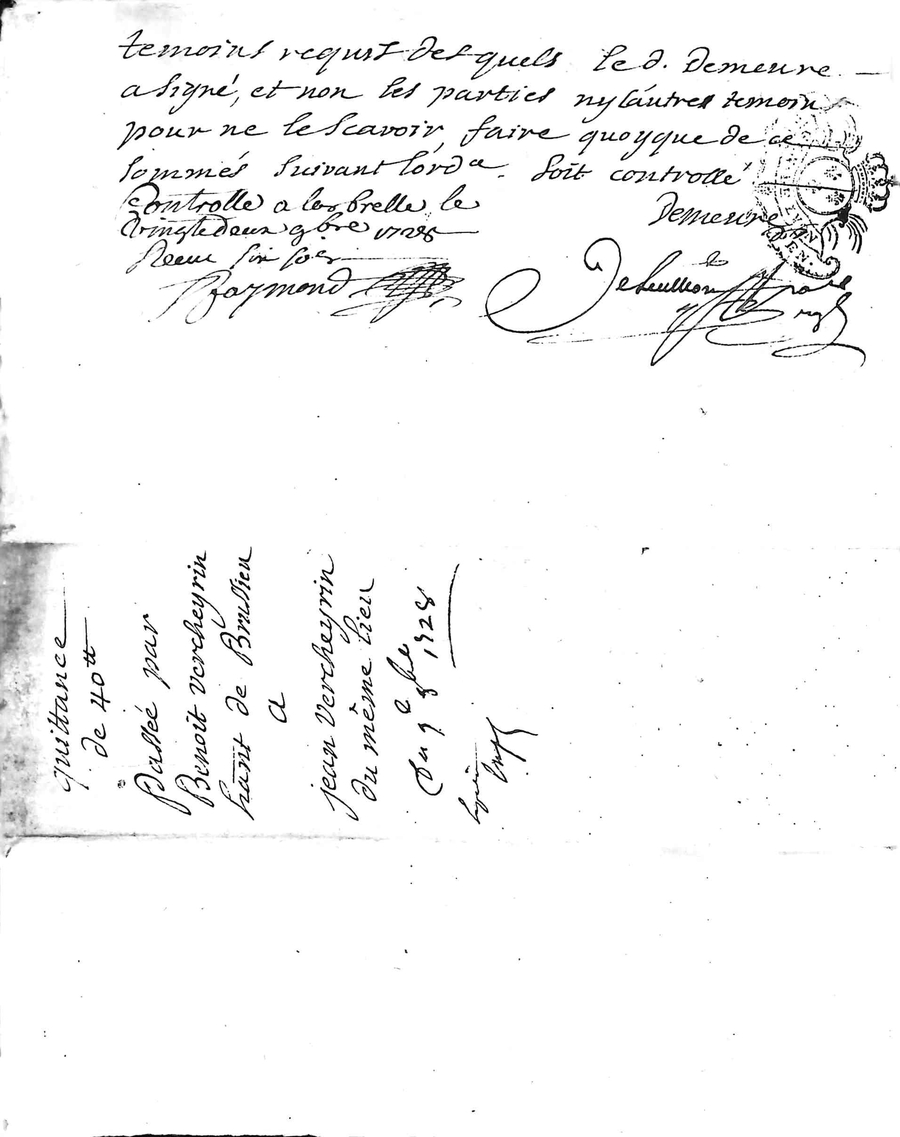 temoins requis desquels le d. Demeure
a signé, et non les parties ny l'autres temoin
pour ne le scavoir faire quoyque de ce
sommés suivant l'ord.e Soit controllé
Controlle a larbrelle le
vingtedeux 9bre 1728
Receu six sols
Raymond
Demeure
quittance
de 40tt
Passée par
Benoit Vercheyrin
hant de Brullieu
a
jean Vercheyrin
du même lieu
Du 9e 9bre 1728